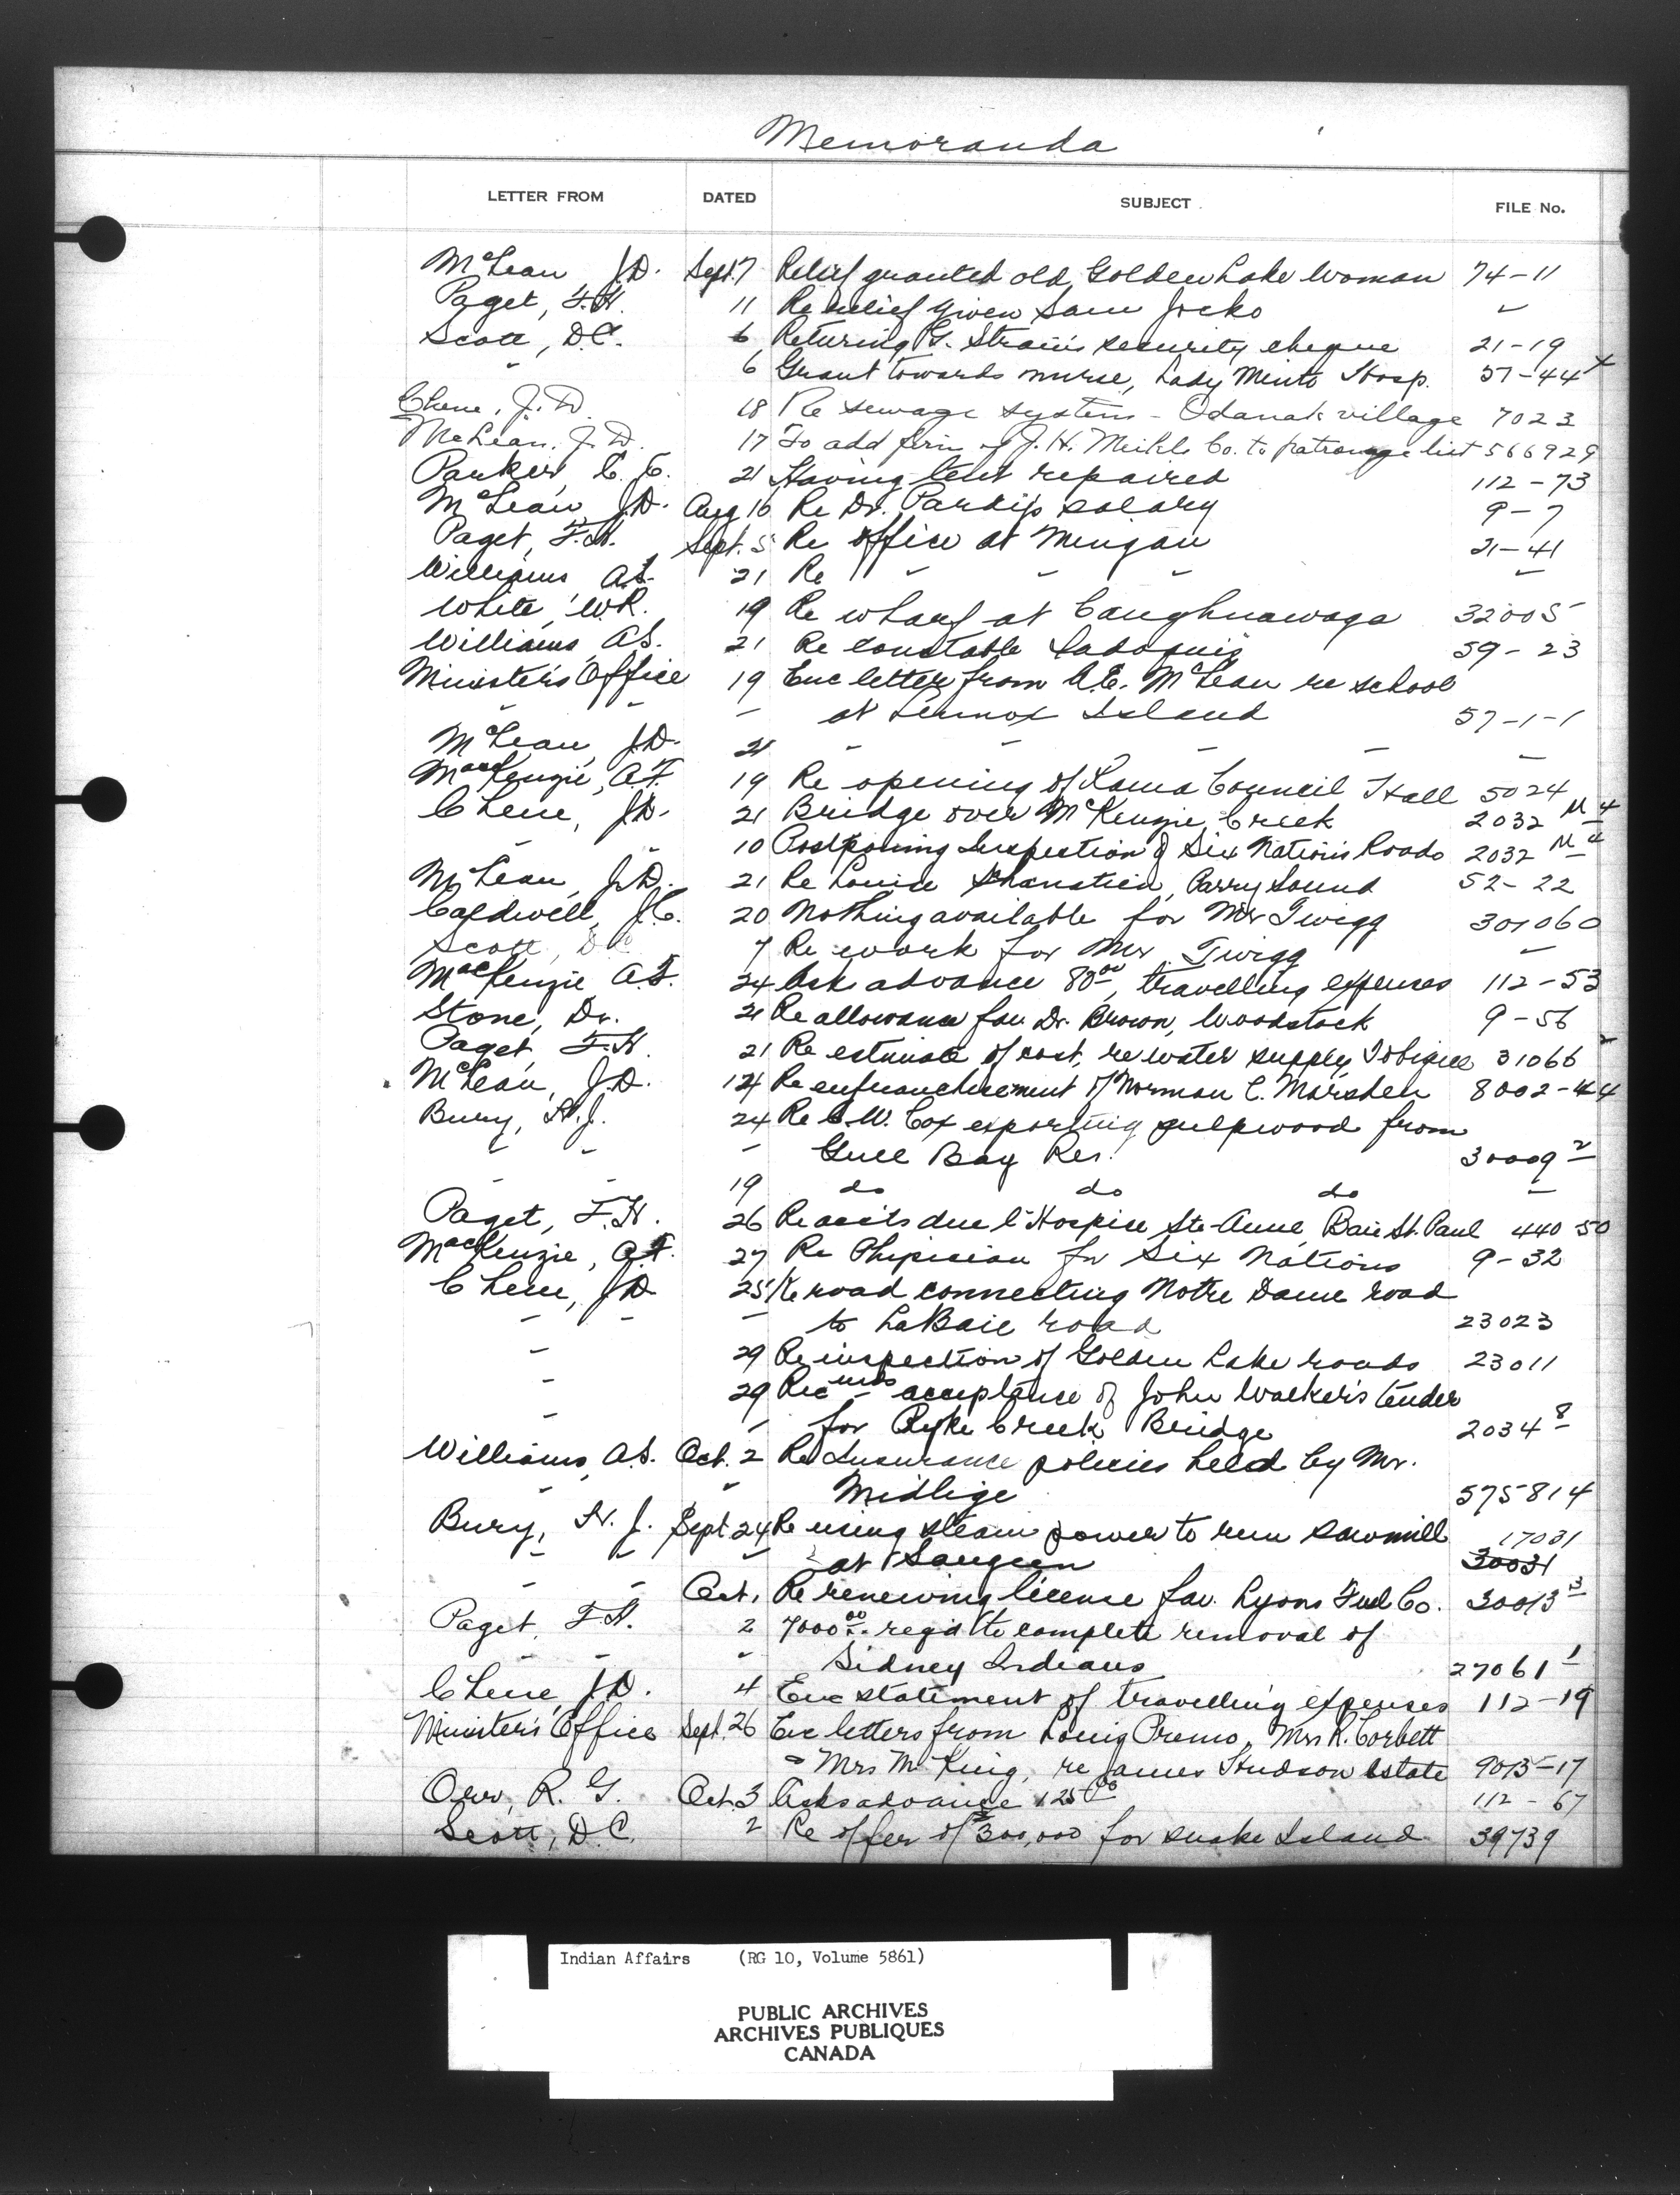 Memoranda
LETTER FROM DATED SUBJECT FILE No.
McLean, J.D. Sept. 7 Relief granted old Golden Lake Woman 74-11
Paget, F.H. 11 Re relief given Sam Jocko "
Scott, D.C. 6 Returing G. Strain's security cheque 21-19
" 6 Grant towards nurse, Lady Minto Hosp. 57-44 x
Chene, J.D. 18 Re sewage system - Odanak village 7023
McLean, J.D. 17 To add firm of J.H. Co. to patronage list 566929
Parker, C.C. 21 Having tent repaired 112-73
McLean, J.D. Aug 16 Re Dr. salary 9-7
Paget, F.H. Sept. 5 Re office at Mingan 21-41
Williams, A.S. 21 Re " " " "
White, W.R. 19 Re wharf at Caughnawaga 32005
Williams, A.S. 21 Re Constable 59-23
Minister's Office 19 Enc letter from A.E. McLean re school
" " " at Lennox Island 57-1-1
McLean, J.D. 21 " " " " "
MacKenzie, A.F. 19 Re opening of Rama Council Hall 5024
Chene, J.D. 21 Bridge over McKenzie Creek 2032 M4
" " 10 Postponing Inspection of Six Nations Roads 2032 M4
McLean, J.D. 21 Re Louise Parry Sound 52-22
Caldwell, J.C. 20 Nothing available for Mr Twigg 301060
Scott, D.C. 7 Re work for Mr Twigg "
MacKenzie, A.F. 24 Ask advance 80.00, travelling expenses 112-53
Stone, Dr. 21 Re allowance fav. Dr. Brown, Woodstock 9-56
Paget, F.H. 21 Re estimate of cost, re water supply, Tobique 31066 2
McLean, J.D. 14 Re enfranchisement of Norman C. Marsden 8002-44
Bury, H.J. 24 Re C.W. Cox exporting pulpwood from
" " " Gull Bay Res. 30009 2
" " 19 do do do "
Paget, F.H. 26 Re accts due l'Hospice Ste-Anne, Baie St. Paul 440 50
MacKenzie, A.F. 27 Re Phipician for Six Nations 9-32
Chene, J.D. 25 Re road connecting Notre Dame road
" " " to LaBaie road 23023
" 29 Re inspection of Golden Lake roads 23011
" 29 Recmds acceptance of John Walker's tender
" " for Pyke Creek Bridge 2034 8
Williams, A.S. Oct. 2 Re Insurance policies held by Mr.
" " Midlige 575814
Bury, H.J. Sept. 24 Re using steam power to run sawmill 17031
" " " at Saugeen 30031
" " Oct. 1 Re renewing license fav. Lyons Fuel Co. 30013 3
Paget, F.H. 2 7000.00 reqd to complete removal of
" " " Sidney Indians 27061 1
Chene, J.D. 4 Enc statement of travelling expenses 112-19
Minister's Office Sept. 26 Enc letters from Louis Premo, Mrs R. Corbett
" Mrs M. King, re James Hudson Estate 9013-17
Orr, R.G. Oct. 3 Asks advance 125.00 112-67
Scott, D.C. 2 Re offer of $300,000 for Snake Island 39739
Indian Affairs (RG 10, Volume 5861)
PUBLIC ARCHIVES
ARCHIVES PUBLIQUES
CANADA